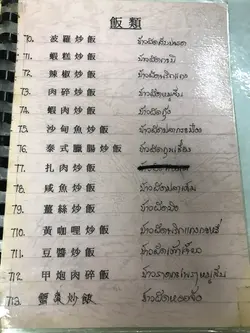 飯類
70. 波羅炒飯 ข้าวผัดสับปะรด
71. 蝦糕炒飯 ข้าวผัดกะปิ
72. 辣椒炒飯 ข้าวผัดพริกแกง
73. 肉碎炒飯 ข้าวผัดหมูสับ
74. 蝦肉炒飯 ข้าวผัดกุ้ง
75. 沙甸魚炒飯 ข้าวผัดปลากระป๋อง
76. 泰式臘腸炒飯 ข้าวผัดกุนเชียง
77. 扎肉炒飯
78. 咸魚炒飯 ข้าวผัดปลาเค็ม
79. 薑絲炒飯 ข้าวผัดขิง
710. 黃咖哩炒飯 ข้าวผัดพริกแกงกะหรี่
711. 豆醬炒飯 ข้าวผัดเต้าเจี้ยว
712. 甲炮肉碎飯 ข้าวราดกะเพราหมูสับ
713. 炒飯